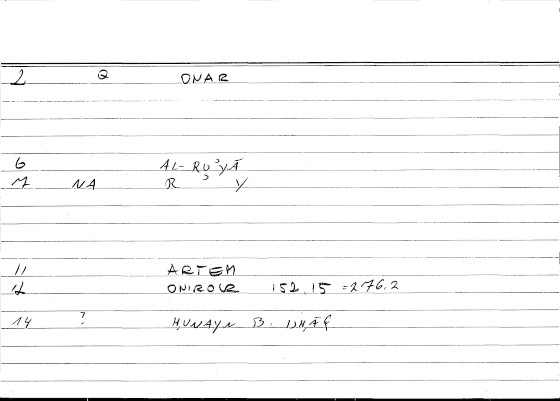 2 Q ONAR
6 AL-RUʾYĀ
7 NA R ʾ Y
11 ARTEM
12 ONIROCR 152.15 = 276.2
14 ? ḤUNAYN B. ISḤĀQ